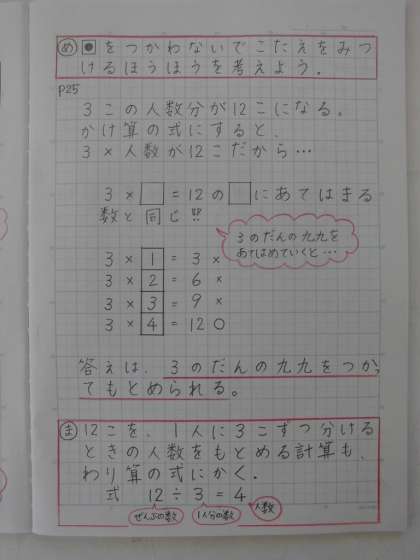 め ●をつかわないでこたえをみつ
けるほうほうを考えよう。
P25
3この人数分が12こになる。
かけ算の式にすると、
3×人数が12こだから…
3×□=12の□にあてはまる
数と同じ!!
3のだんの九九を
あてはめていくと…
3×1=3×
3×2=6×
3×3=9×
3×4=12○
答えは、3のだんの九九をつかっ
てもとめられる。
ま 12こを、1人に3こずつ分ける
ときの人数をもとめる計算も、
わり算の式にかく。
式 12÷3=4
ぜんぶの数 1人分の数 人数